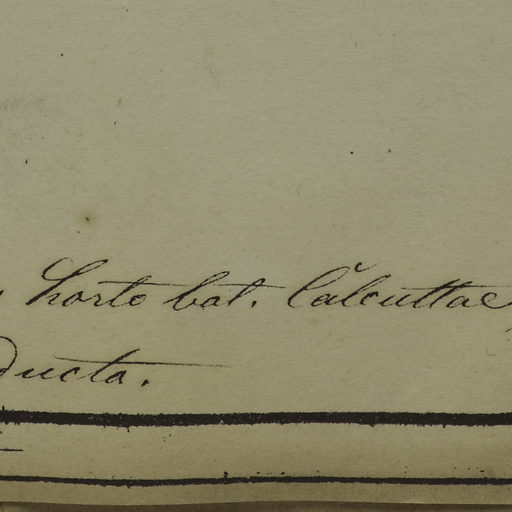 horto bot. Calcuttae
ducta.